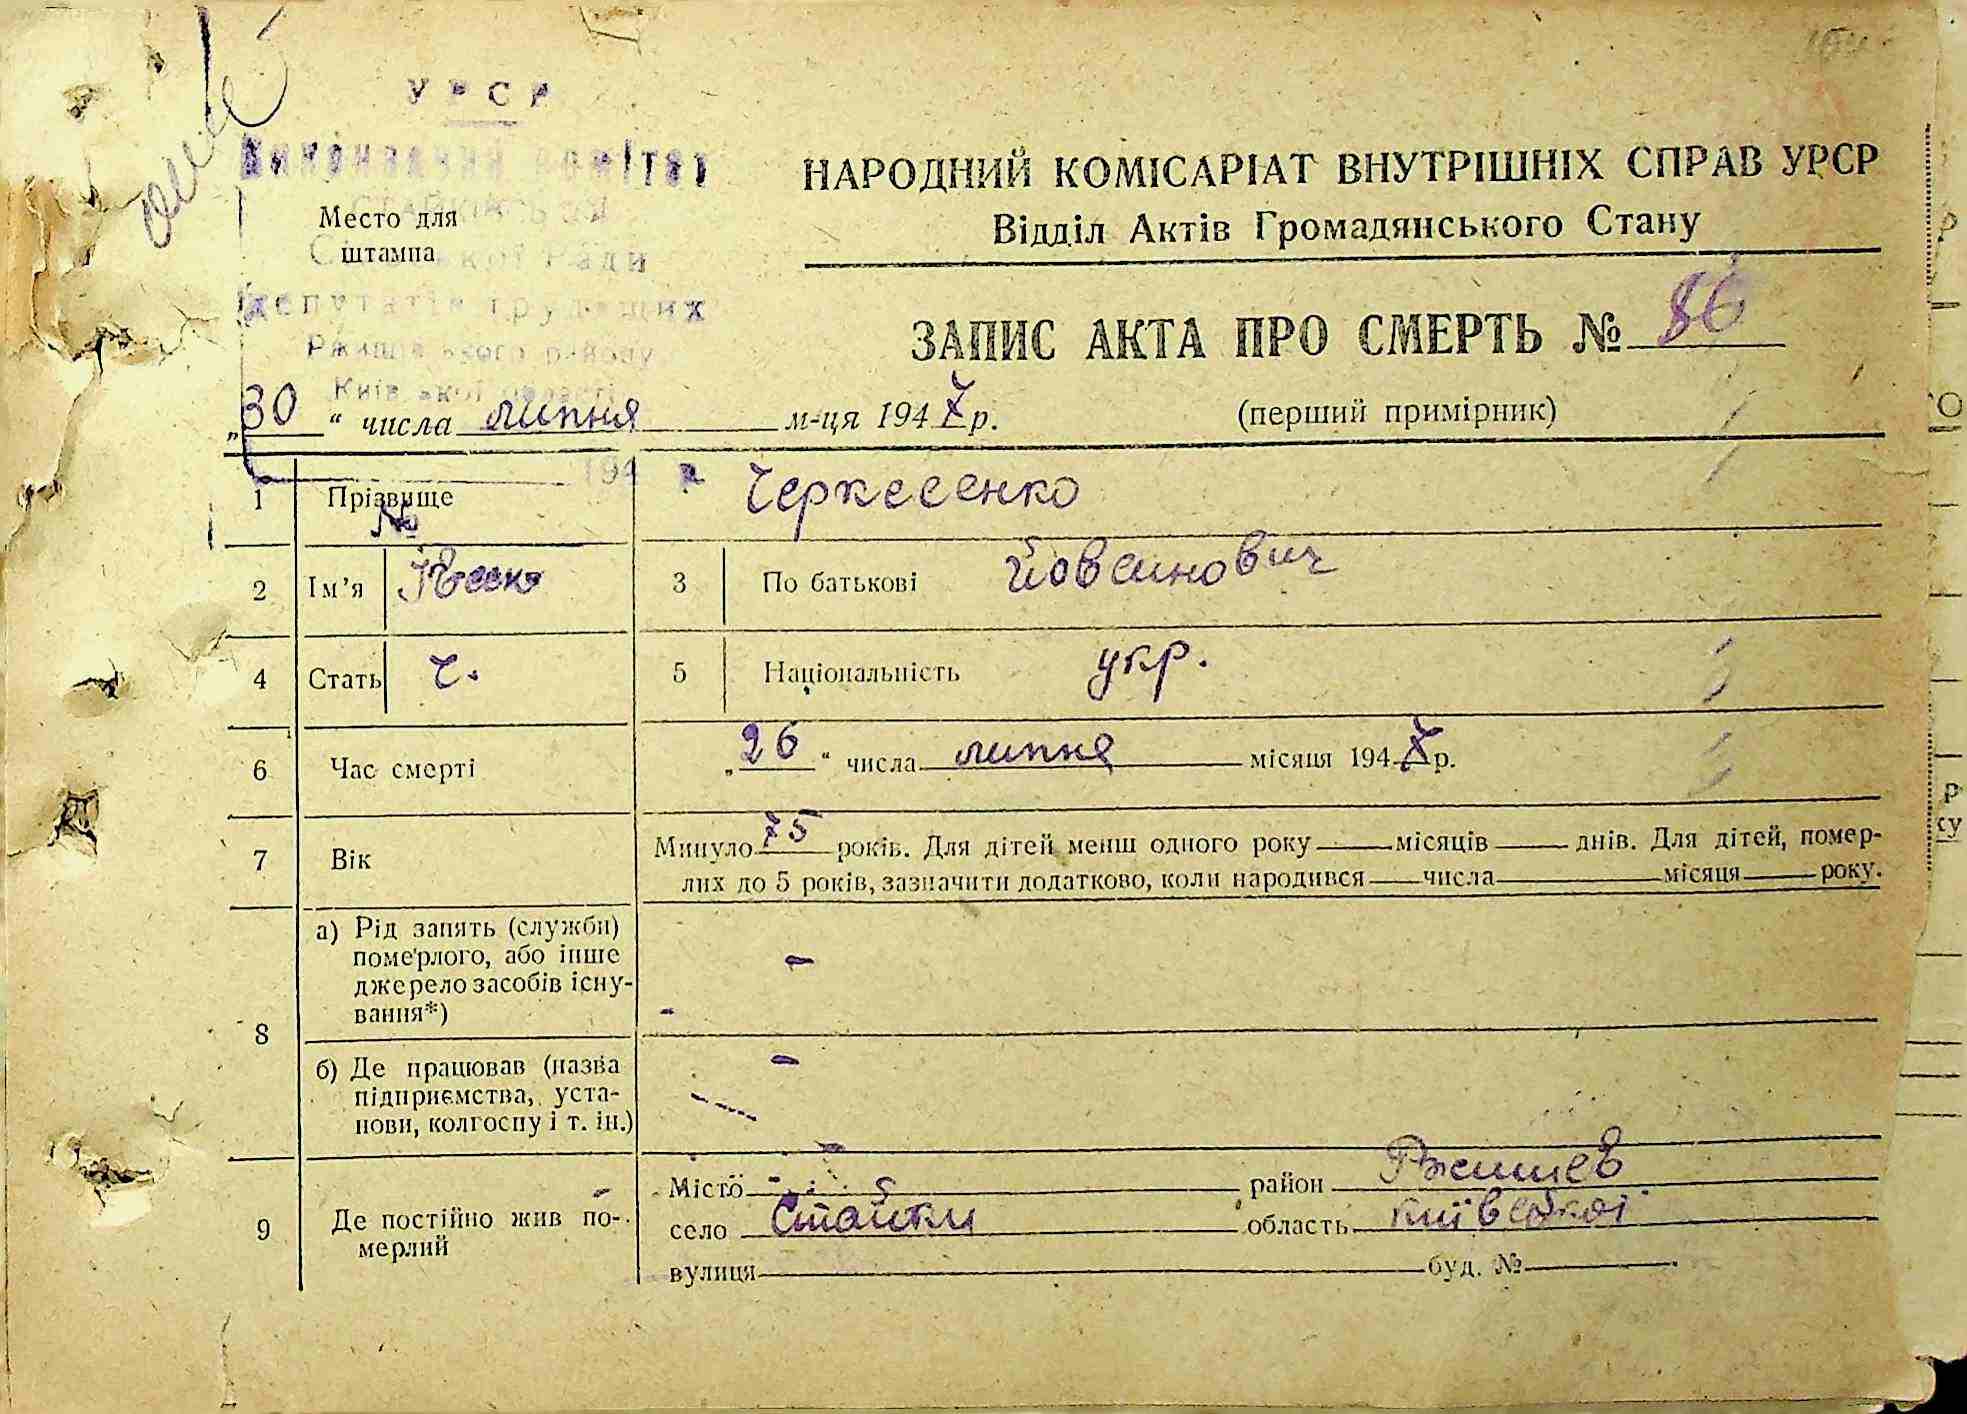 УРСР
Виконавчий комітет
Стайківська
Сільської Ради
депутатів трудящих
Ржищівського району
Київської області
Место для
штампа
194 р.
№
НАРОДНИЙ КОМІСАРІАТ ВНУТРІШНІХ СПРАВ УРСР
Відділ Актів Громадянського Стану
ЗАПИС АКТА ПРО СМЕРТЬ № 86
„30“ числа липня м-ця 1947 р.
(перший примірник)
1 Прізвище Черкесенко
2 Ім’я 3 По батькові
4 Стать ч. 5 Національність укр.
6 Час смерті „26“ числа липня місяця 1947 р.
7 Вік Минуло 75 років. Для дітей менш одного року місяців днів. Для дітей, помер-
лих до 5 років, зазначити додатково, коли народився числа місяця року.
8 а) Рід занять (служби)
померлого, або інше
джерело засобів існу-
вання*) –
б) Де працював (назва
підприємства, уста-
нови, колгоспу і т. ін.) –
9 Де постійно жив по-
мерлий
Місто район Ржищев
село Стайки область Київської
вулиця буд. №